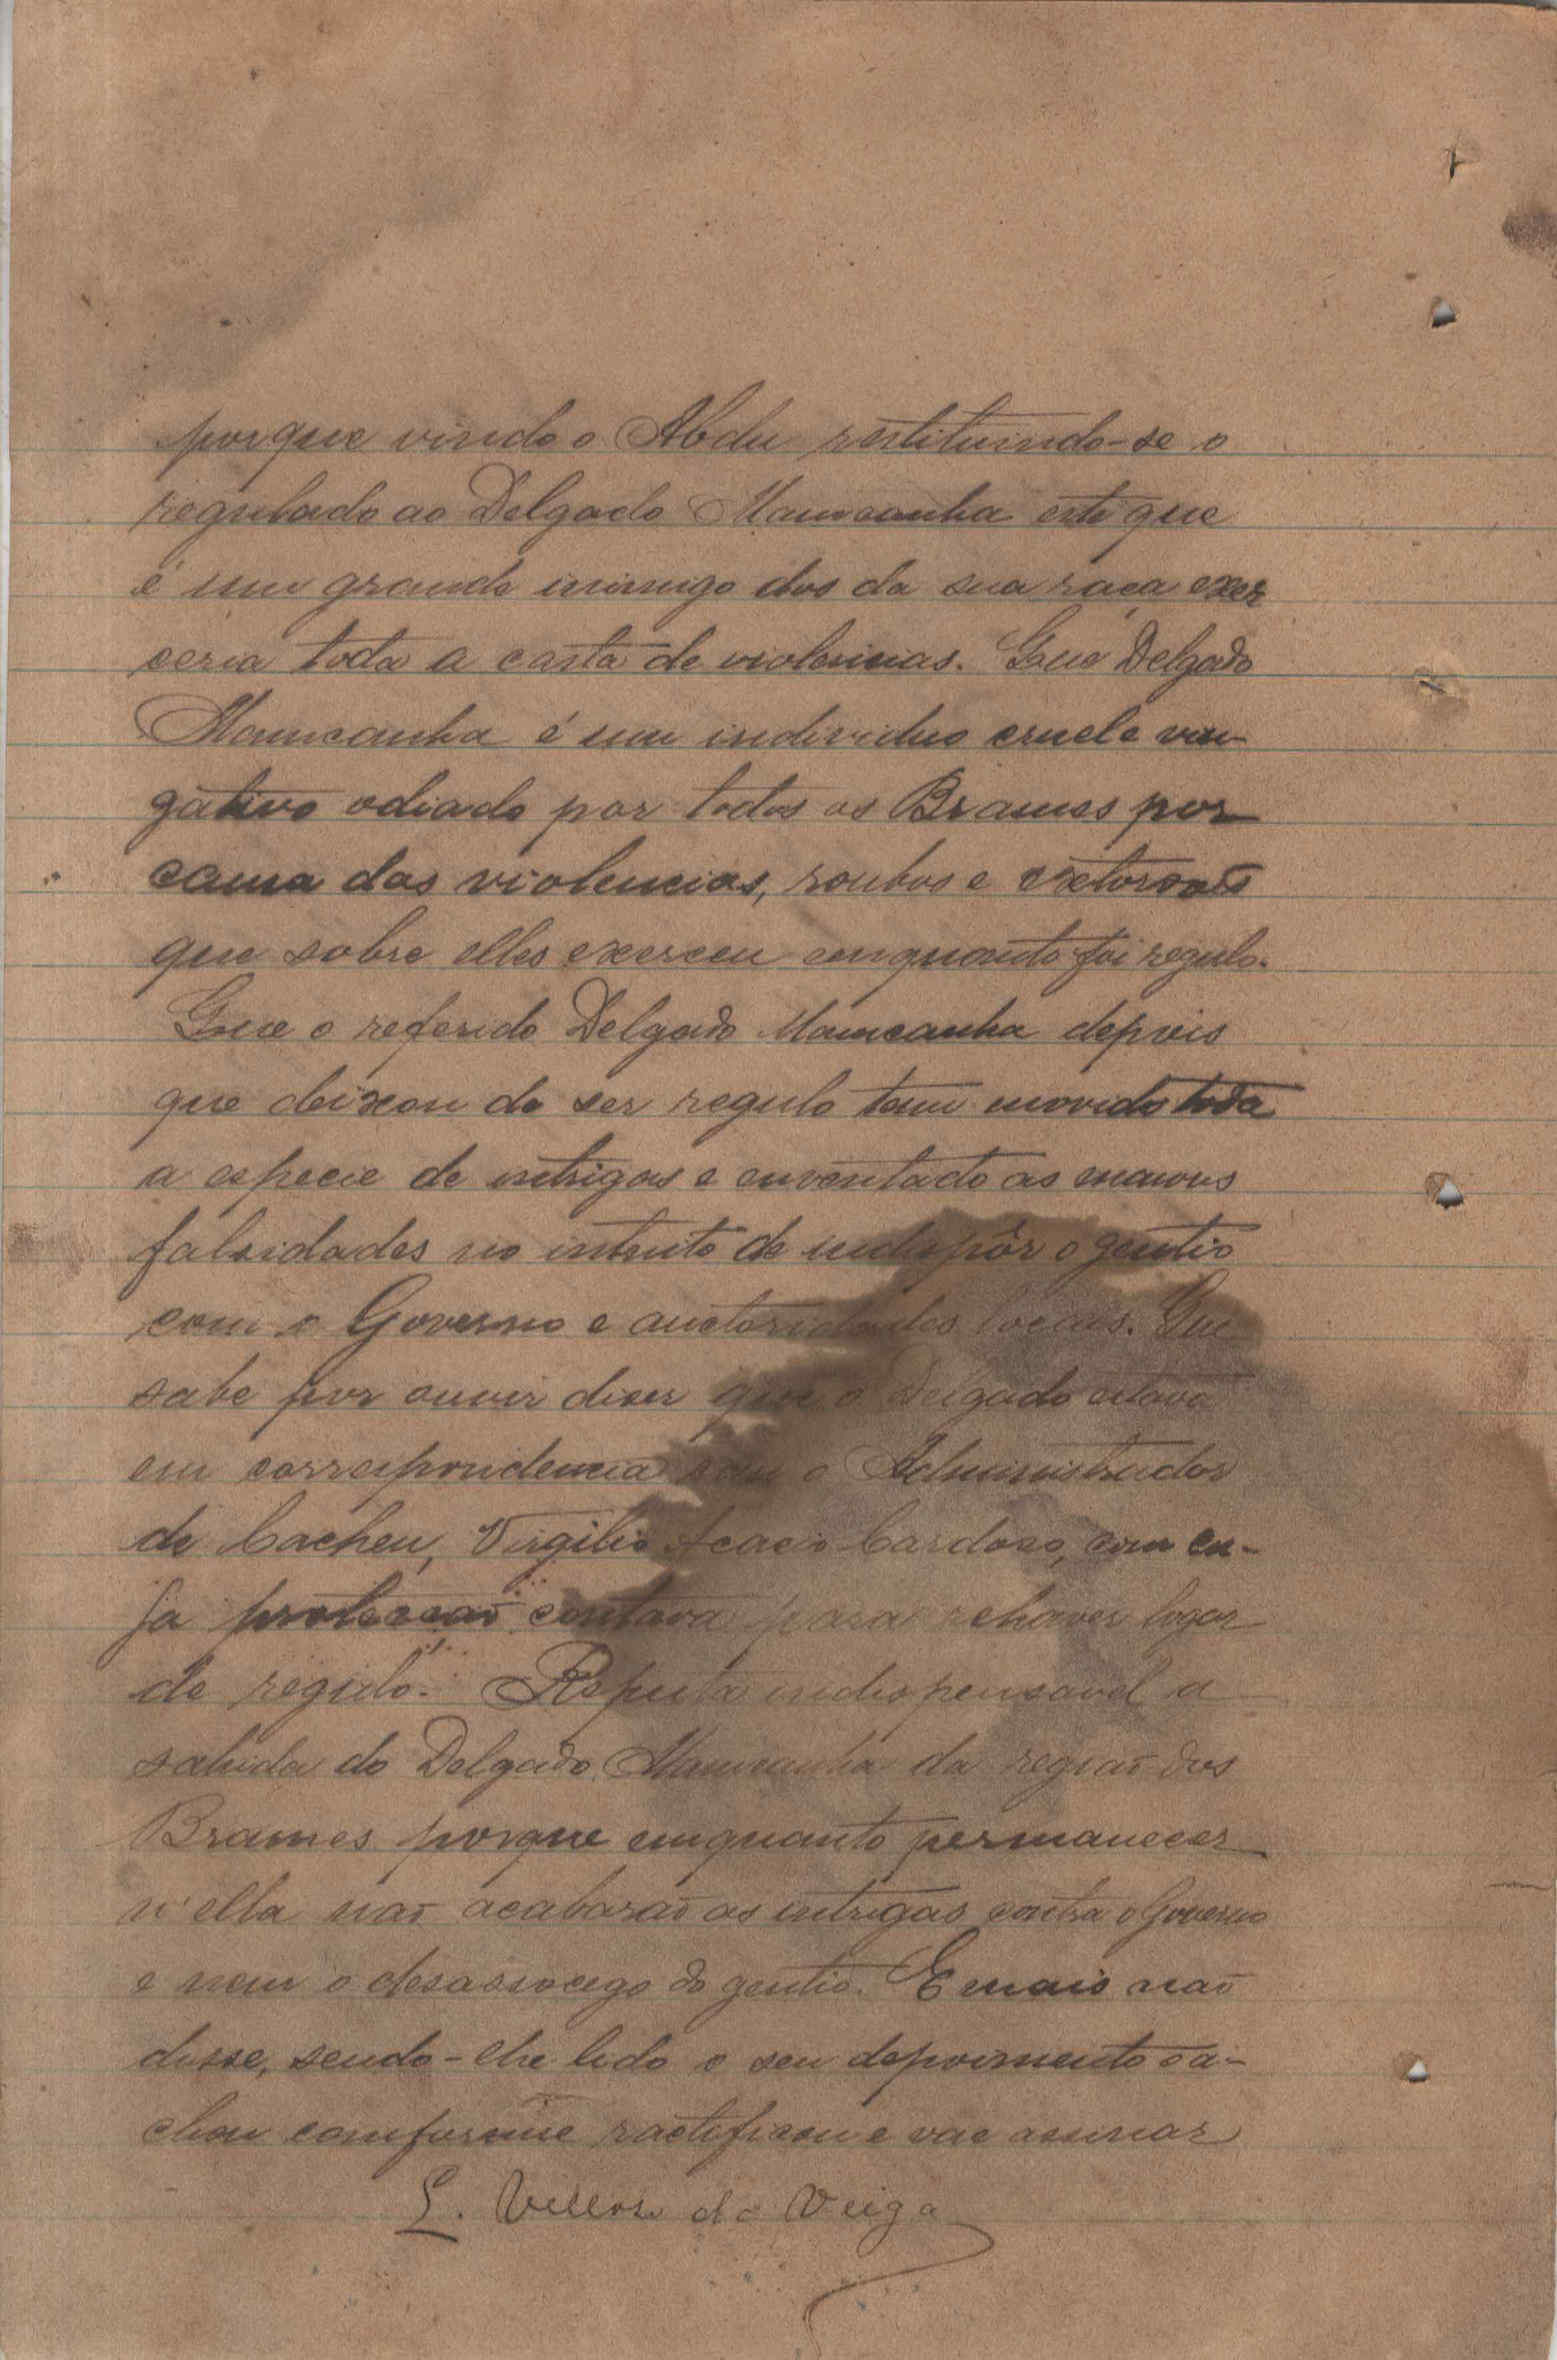 porque vindo o Abdu restituindo-se o
regulado ao Delgado Mamcanha este que
é um grande inimigo dos da sua raça exer
ceria toda a casta de violencias. Que Delgado
Mamcanha é um individuo cruel e vin-
gativo odiado por todos os Brames por
causa das violencias, roubos e extorsoẽs
que sobre elles exerceu emquanto foi regulo.
Que o referido Delgado Mamcanha depois
que deixou de ser regulo tem movido toda
a especie de intrigas e enventado as maiores
falsidades no intuito de indispôr o gentio
com o Governo e auctoridades locaes. Que
sabe por ouvir diser que o Delgado estava
em correspondencia com o Administrador
de Cacheu, Virgilio Acacio Cardoso, com cu-
ja protecção contava para rehaver logar
de regulo. Reputa indispensavel a
sahida do Delgado Mamcanha da região dos
Brames porque emquanto permanecer
n'ella não acabarão as intrigas contra o Governo
e nem o desassocego do gentio. E mais não
disse, sendo-lhe lido o seu depoimento o a-
chou comforme ractificou e vae assinar
L. Veiga